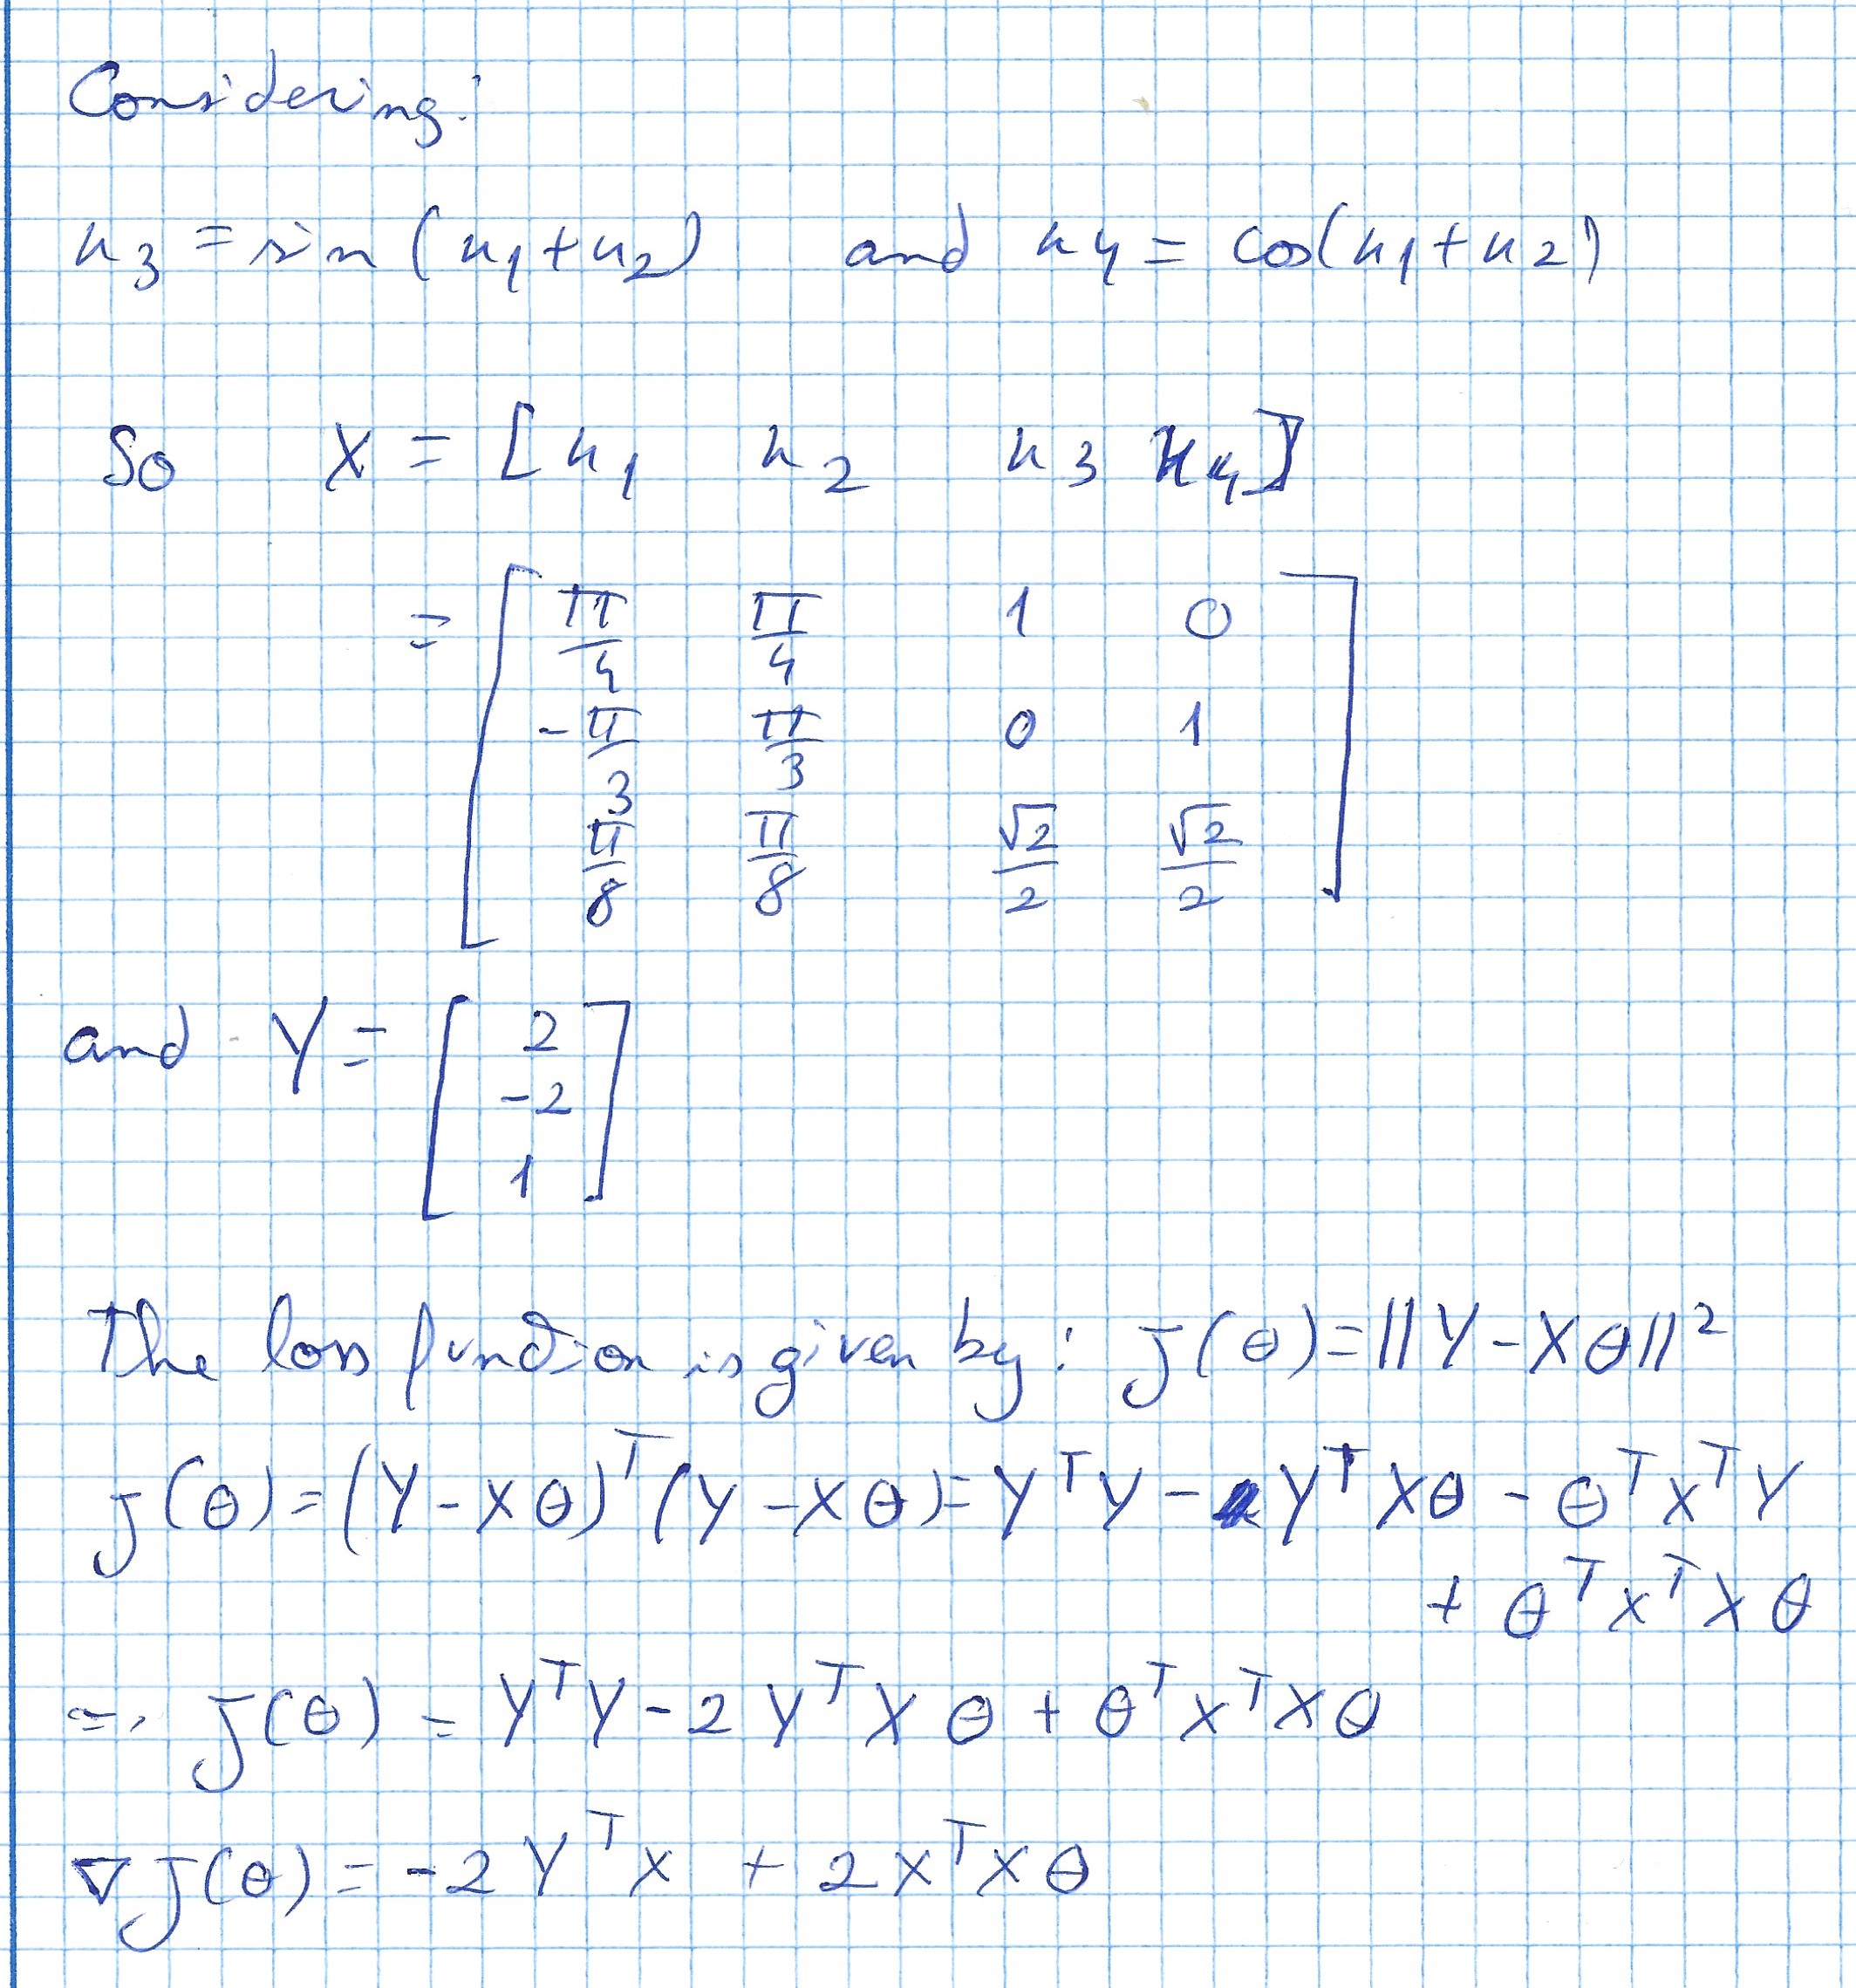 Considering:
x3 = sin(x1+x2) and x4 = cos(x1+x2)
So X = [x1 x2 x3 x4]
= [π/4 π/4 1 0
-π/3 π/3 0 1
π/8 π/8 √2/2 √2/2]
and Y = [2
-2
1]
The loss function is given by: J(θ)=||Y-Xθ||²
J(θ)=(Y-Xθ)ᵀ(Y-Xθ)=YᵀY-YᵀXθ-θᵀXᵀY
+ θᵀXᵀXθ
=> J(θ) = YᵀY-2YᵀXθ+θᵀXᵀXθ
∇J(θ)=-2YᵀX + 2XᵀXθ